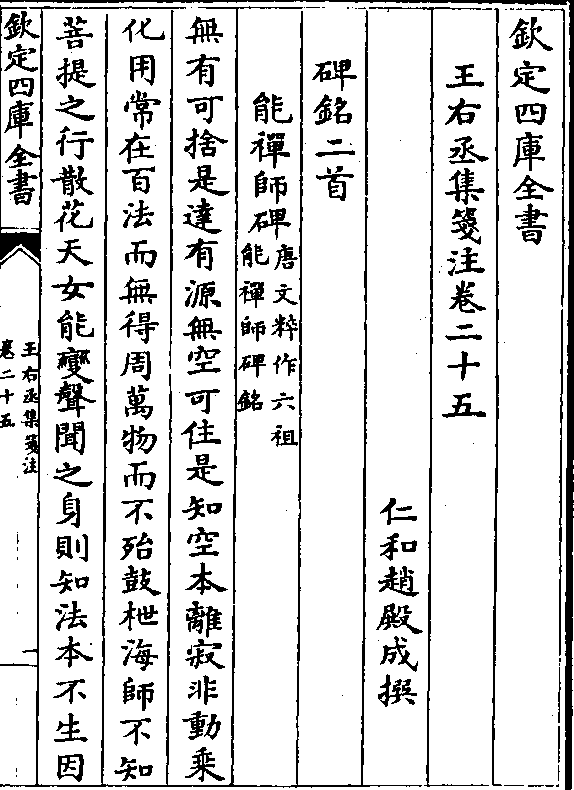 欽定四庫全書
王右丞集箋注卷二十五
仁和趙殿成撰
碑銘二首
能禪師碑唐文粹作六祖能禪師碑銘
無有可捨是達有源無空可住是知空本離寂非動乗
化用常在百法而無得周萬物而不殆鼓枻海師不知
菩提之行散花天女能變聲聞之身則知法本不生因
欽定四庫全書
王右丞集箋注
卷二十五
一